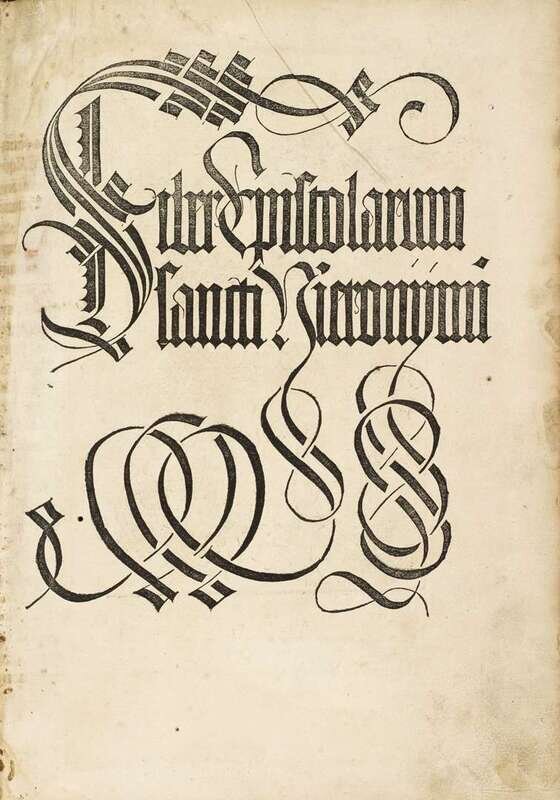 Liber Epistolarum
sancti Hieronymi.